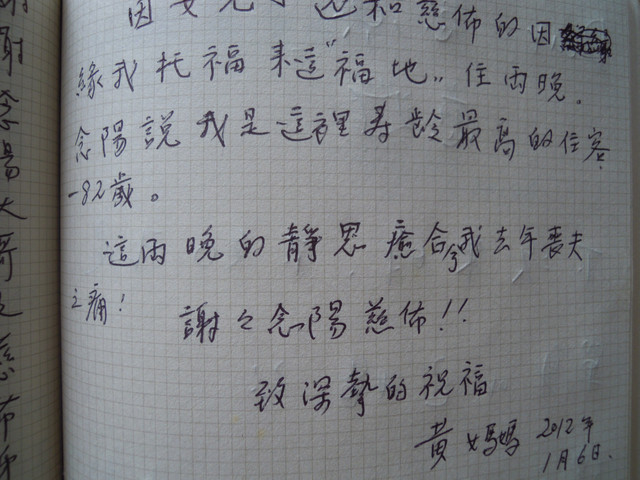 謝念陽大哥及慈布
因女兒 和慈佈的因
緣我托福來這"福地"住兩晚.
念陽說我是這裡壽齡最高的住客
-82歲。
這兩晚的靜思癒合了我去年喪夫
之痛!
謝々念陽慈佈!!
致深摯的祝福
黃媽媽 2012年
1月6日.